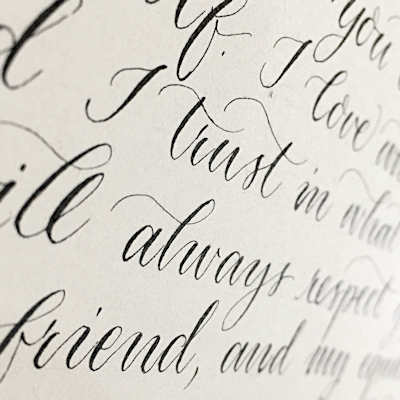 You
f. I love
I trust in what
ill always respect
friend, and my